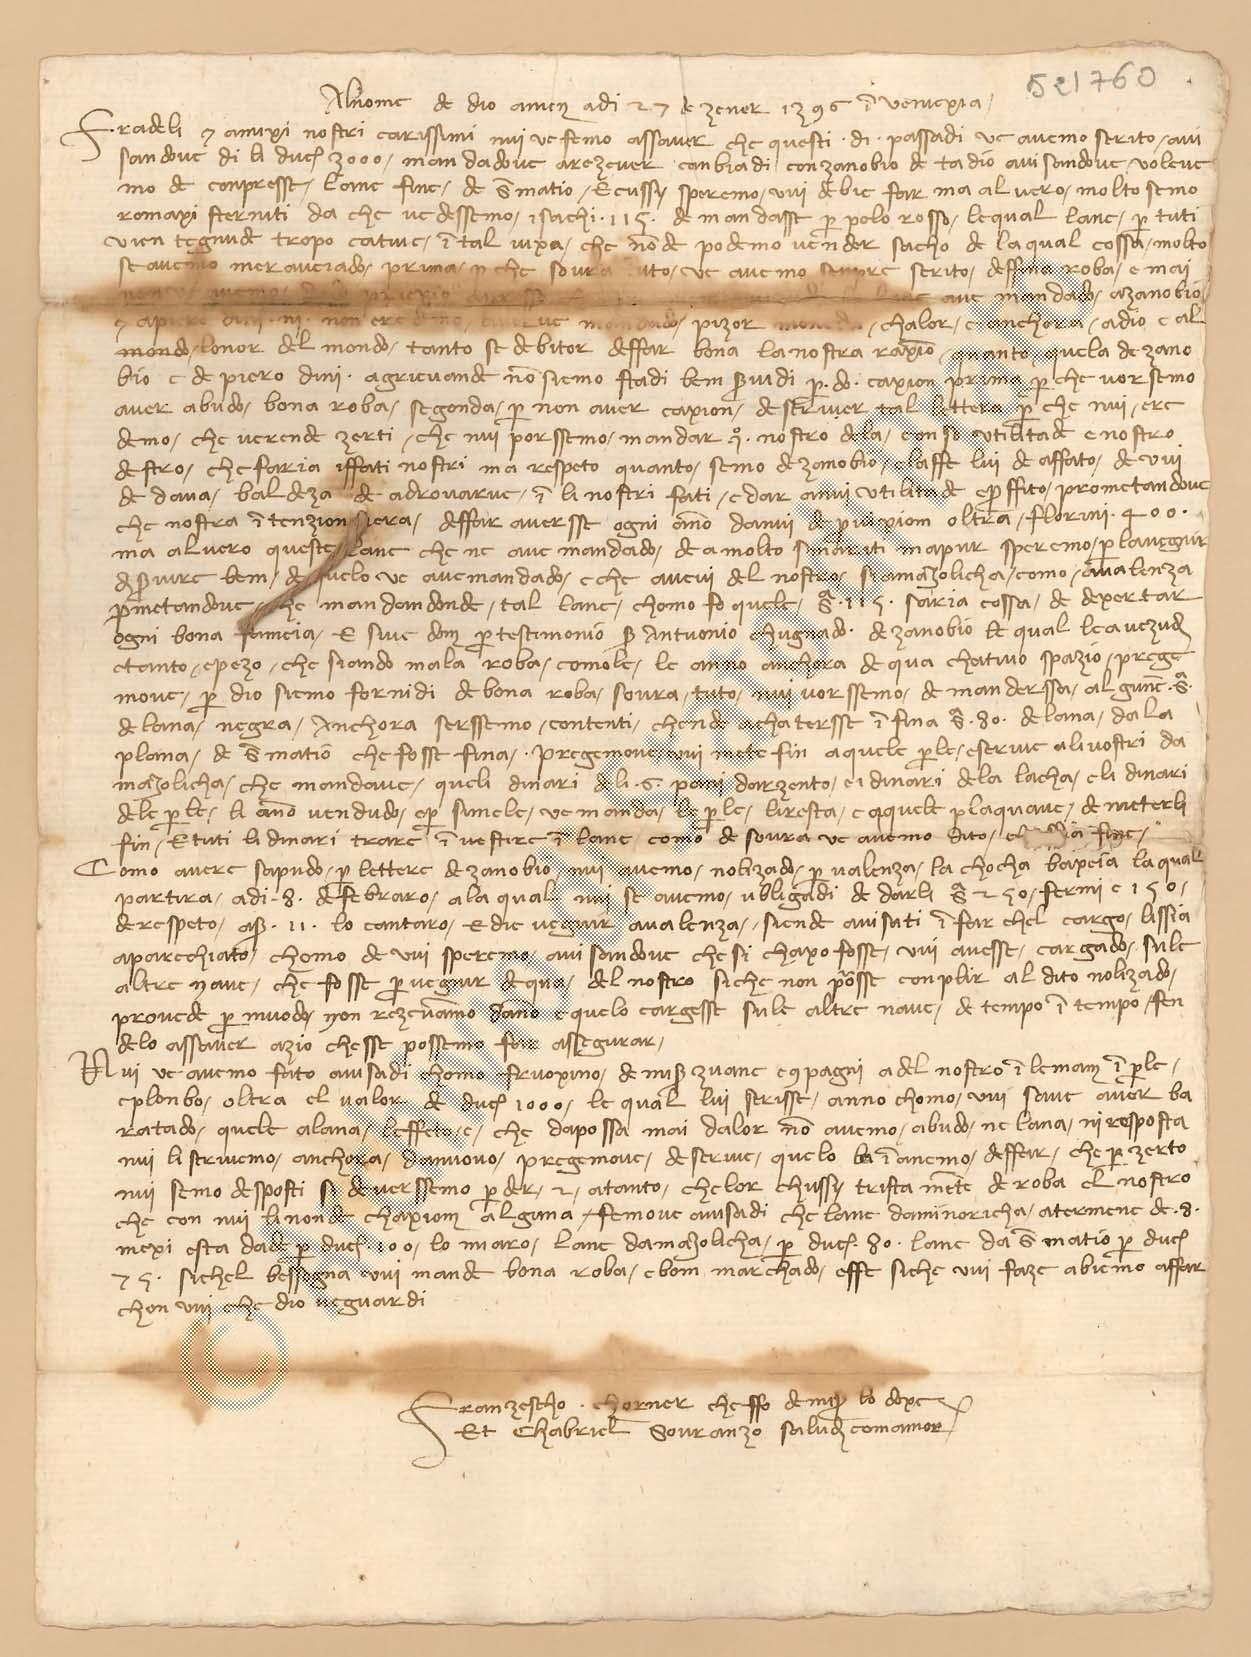 521760
Al nome de dio amen adi 27 de zener 1396 ī veniexia
Fradeli 7 amixi nostri carissimi nui ve femo assaver che questi di passadi ve avemo scrito avi
sandove di li duch 3000 mandadove a rezever canbiadi con zanobio de tadio avisandove voleve
mo de conpresse lane fine de s̄ matio e cussy speremo vui debie far ma al vero molto semo
romaxi sterniti da che vedessemo i sachi 115 de mandasse p polo rosso le qual lane p tuti
vien tegnude tropo cative ī tal vixa che nō de podemo vender sacho de la qual cossa molto
se avemo meraveiado prima p che sovra tuto ve avemo senpre scrito deffina roba e mai
ave mandado a zanobio
7 a piero dini non ere mandado pizor chalor e anchora a dio e al
mondo lonor del mondo tanto se debitor deffar bona la nostra raxiō quanto quela de zano
bio e de piero dini agrievande nō siemo stadi bem s̄vidi p do caxion prima p che vorsemo
aver abudo bona roba segonda p non aver caxion de scriver tal lettera p che nui cre
demo che verende zerti che nui porssemo mandar nostro dela con so utilitade e nostro
destro che faria i ffati nostri ma respeto quanto semo de zanobio e laffe lui de affato de vui
de dava baldeza de adrovarve ī li nostri fati e dar a nui utilitade e p̄ffito prometandove
che nostra ītenzion siera deffar aversse ogni āno da nui de pruixiom oltra florini 400
ma al vero queste lane che ne ave mandado de a molto smariti ma pur speremo p lavegnir
de s̄vire bem de quelo ve avemandado e che avevi del nostro si a maiolicha como a valenza
p̄metandove che mandandonde tal lane chomo fo quele s̄ 115 saria cossa de dexertar
ogni bona fameia e sive dom p testimonio s̄ Antuonio chugnado de zanobio le qual le a vezude
e tanto e pezo che siando mala roba como le le anno anchora de qua chativo spazio prege
move p dio siemo fornidi de bona roba sovra tuto nui vorssemo de manderssa algune s̄
de lana negra Anchora serssemo contenti chende achatersse ī fina s̄ 80 de lana da la
plana de s̄ matio che fosse fina pregemove vui mete fin a quele p̄le e scrive a li vostri da
maiolicha che mandave queli dinari de li 6 pani darzento e i dinari dela lacha e li dinari
dele p̄le li āno vendudo e p simele ve manda le p̄le li resta e a quele p laquave de meterli
fin E tuti li dinari trare ī vestire ī lane como de sovra ve avemo dito e fine
Como avere sapudo p lettere de zanobio nui avemo nolizado p valenza la chocha baxeia la qual
partira adi 8 de febraro a la qual nui se avemo ubligadi de darli s̄ 250 fermi e 150
de respeto a s̄ 11 lo cantaro e die vegnir a valenza siende avisati ī far chel cargo lissia
aparechiato chomo de vui speremo avisandove che si chaxo fosse vui avesse cargado sule
altre nave che fosse p vegnir de qua del nostro siche non posse conplir al dito nolizado
provede p muodo non rezevamo dano e quelo cargesse sule altre nave de tempo ī tempo fen
delo assaver azio chesse possemo far assegurar
Nui ve avemo fato avisadi chomo fruoxino de mis̄ zuane e conpagni a del nostro ī le mam ī p̄le
e plonbo oltra el valor de duch 1000 le qual lui scrisse anno chomo vui save aver ba
ratado quele a lana leffeto e che dapossa mai dalor nō avemo abudo ne lana ni resposta
nui li scrivemo anchora danuovo pregemove de scrive quelo li īanemo deffar che p zerto
nui semo desposti si deverssemo p̄der 2 atanto che lor chussy trista mēte de roba el nostro
che con nui li nonde chaxiom alguna femove avisadi che lane da minoricha a termene de 8
mexi esta dade p duch 100 lo miaro lane da maiolicha p duch 80 lane da s̄ matio p duch
75 sichel bessogna vui mande bona roba e bom marchado effe siche vui faze abiemo affar
chon vui che dio ve guardi
Franzescho chorner cheffo de mis̄ lo doxe
Et Ghabriel Souranzo salude com amor